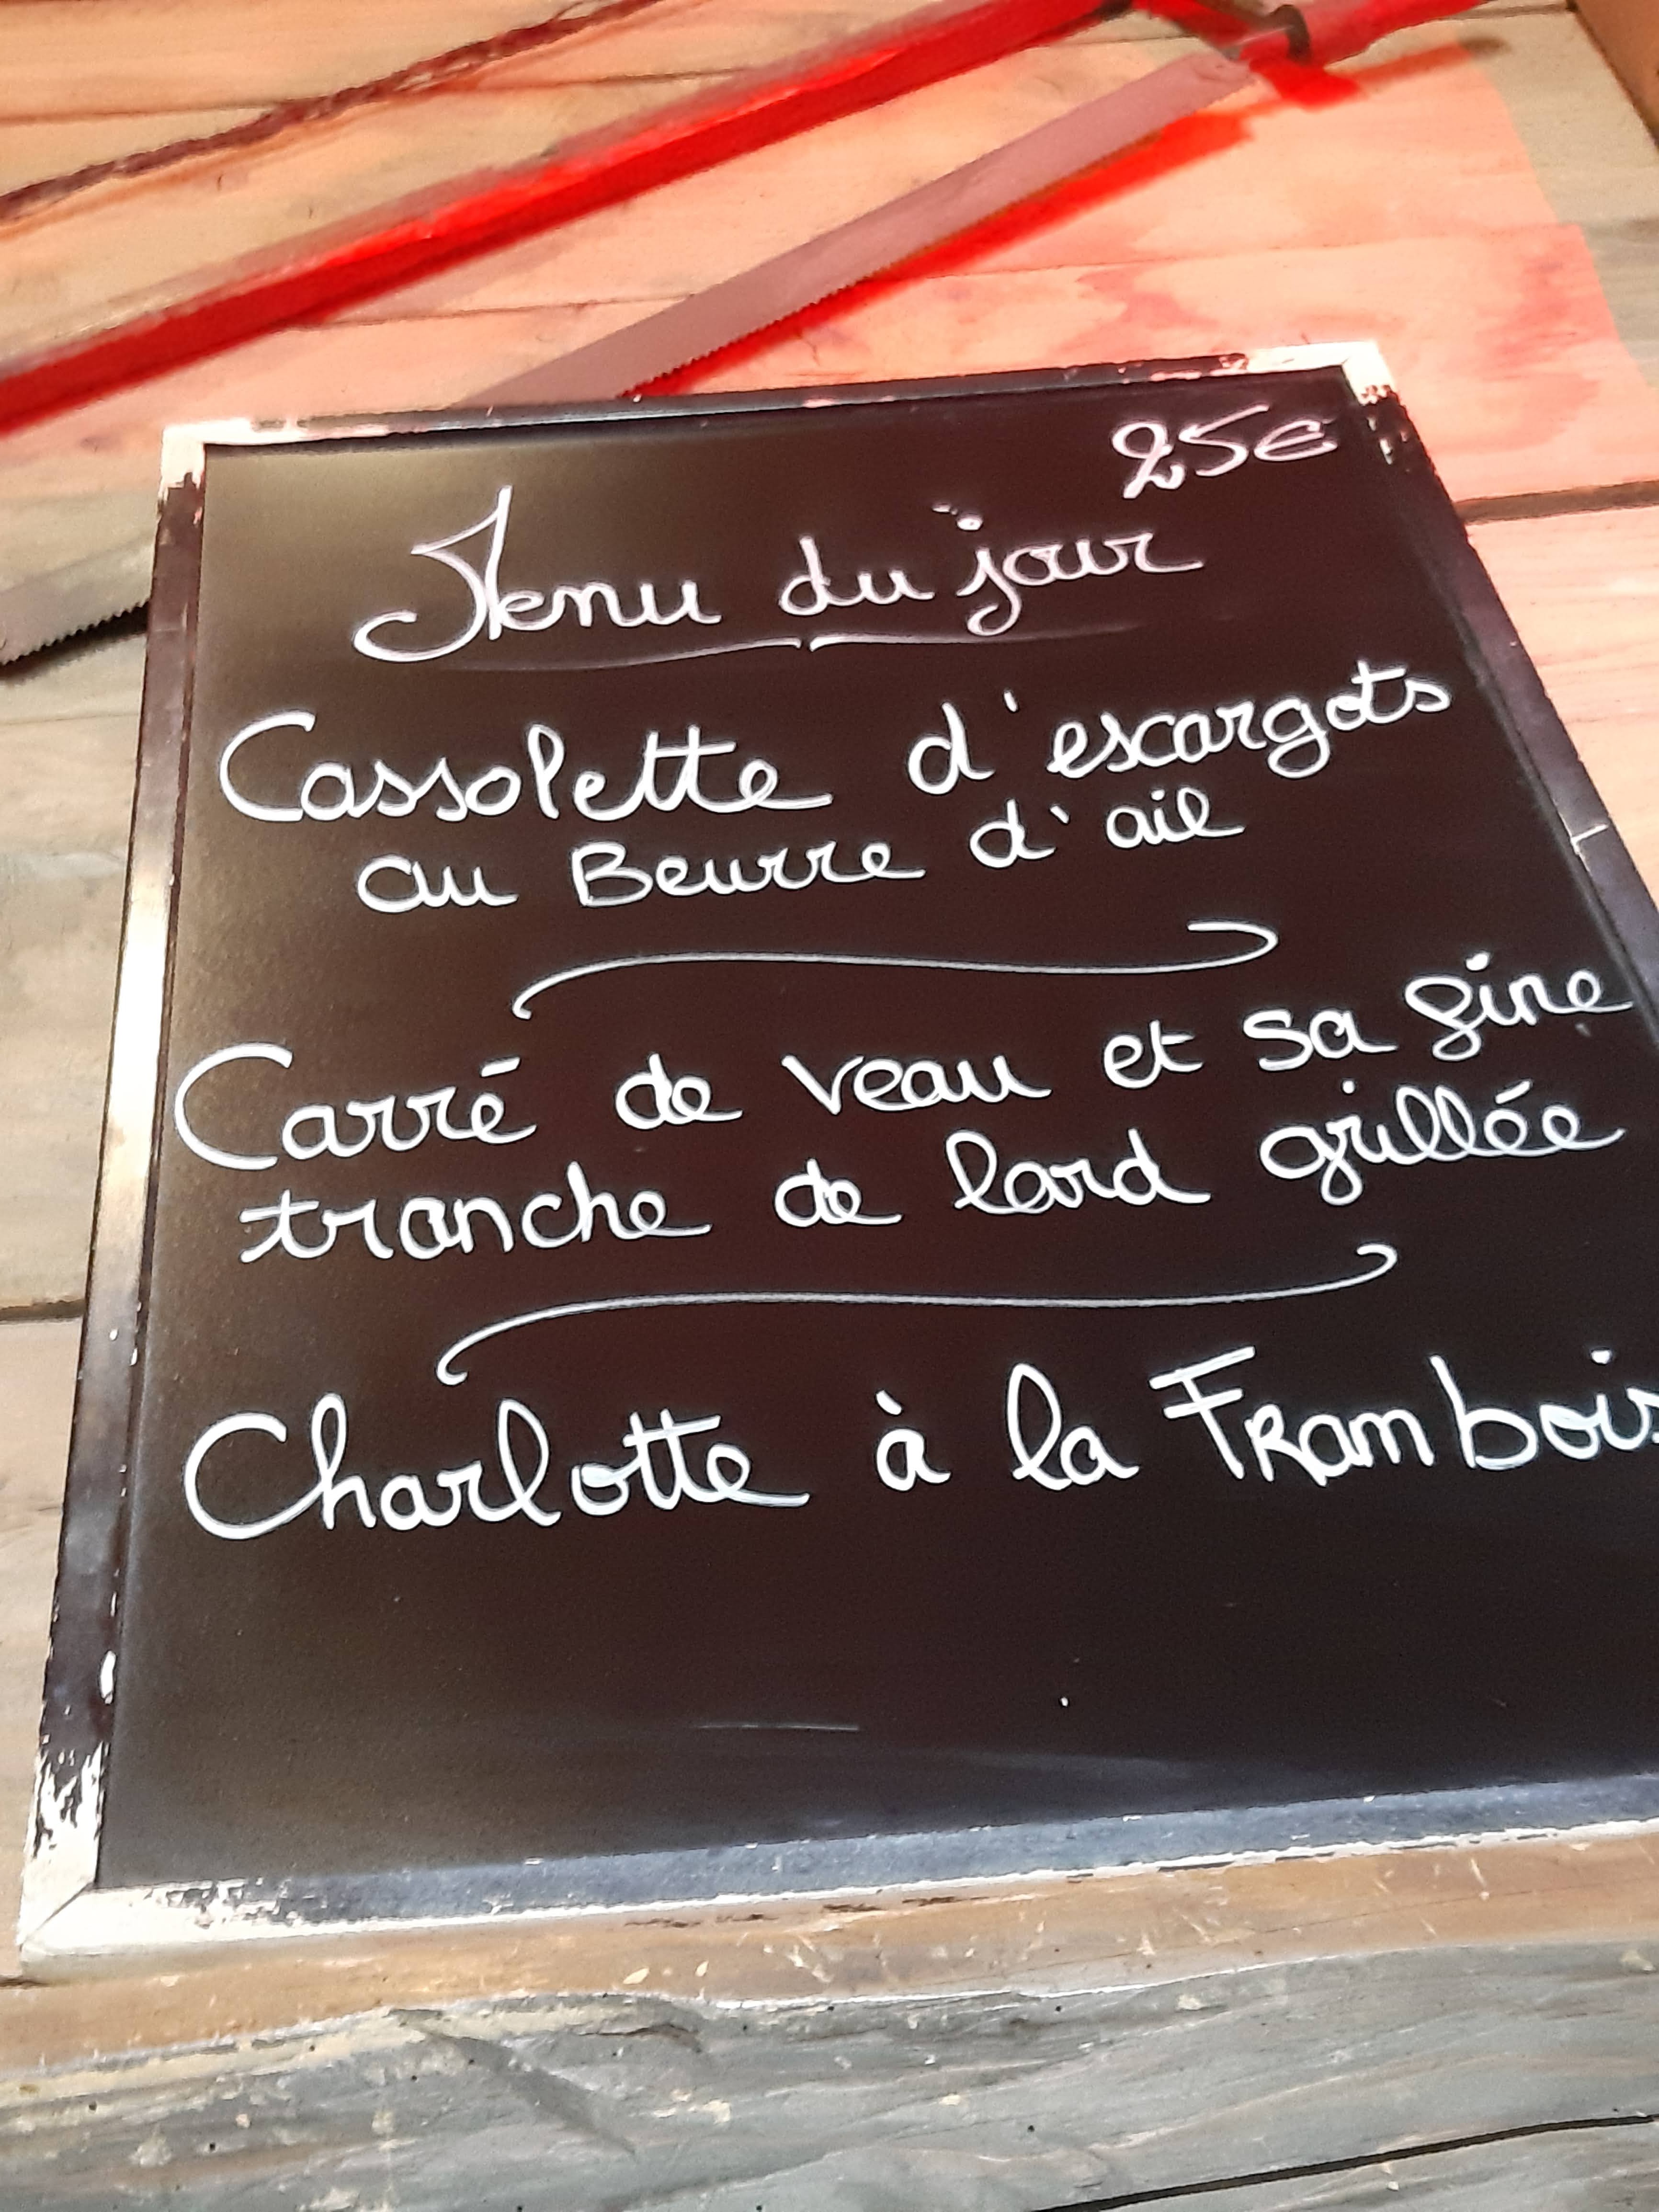 25€
Menu du jour
Cassolette d'escargots
au Beurre d'ail
Carré de veau et sa fine
tranche de lard grillée
Charlotte à la Frambois